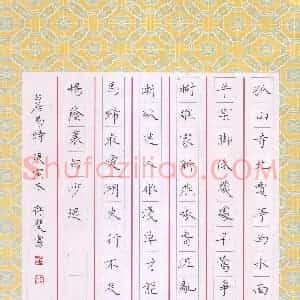 孤山寺北賈亭西水面
平雲脚低幾處早鶯爭
樹誰家新燕啄春泥亂
漸欲迷人眼淺草才能
馬蹄最愛湖東行不足
楊陰裏白沙堤
白居易詩
Shufaziliao.com